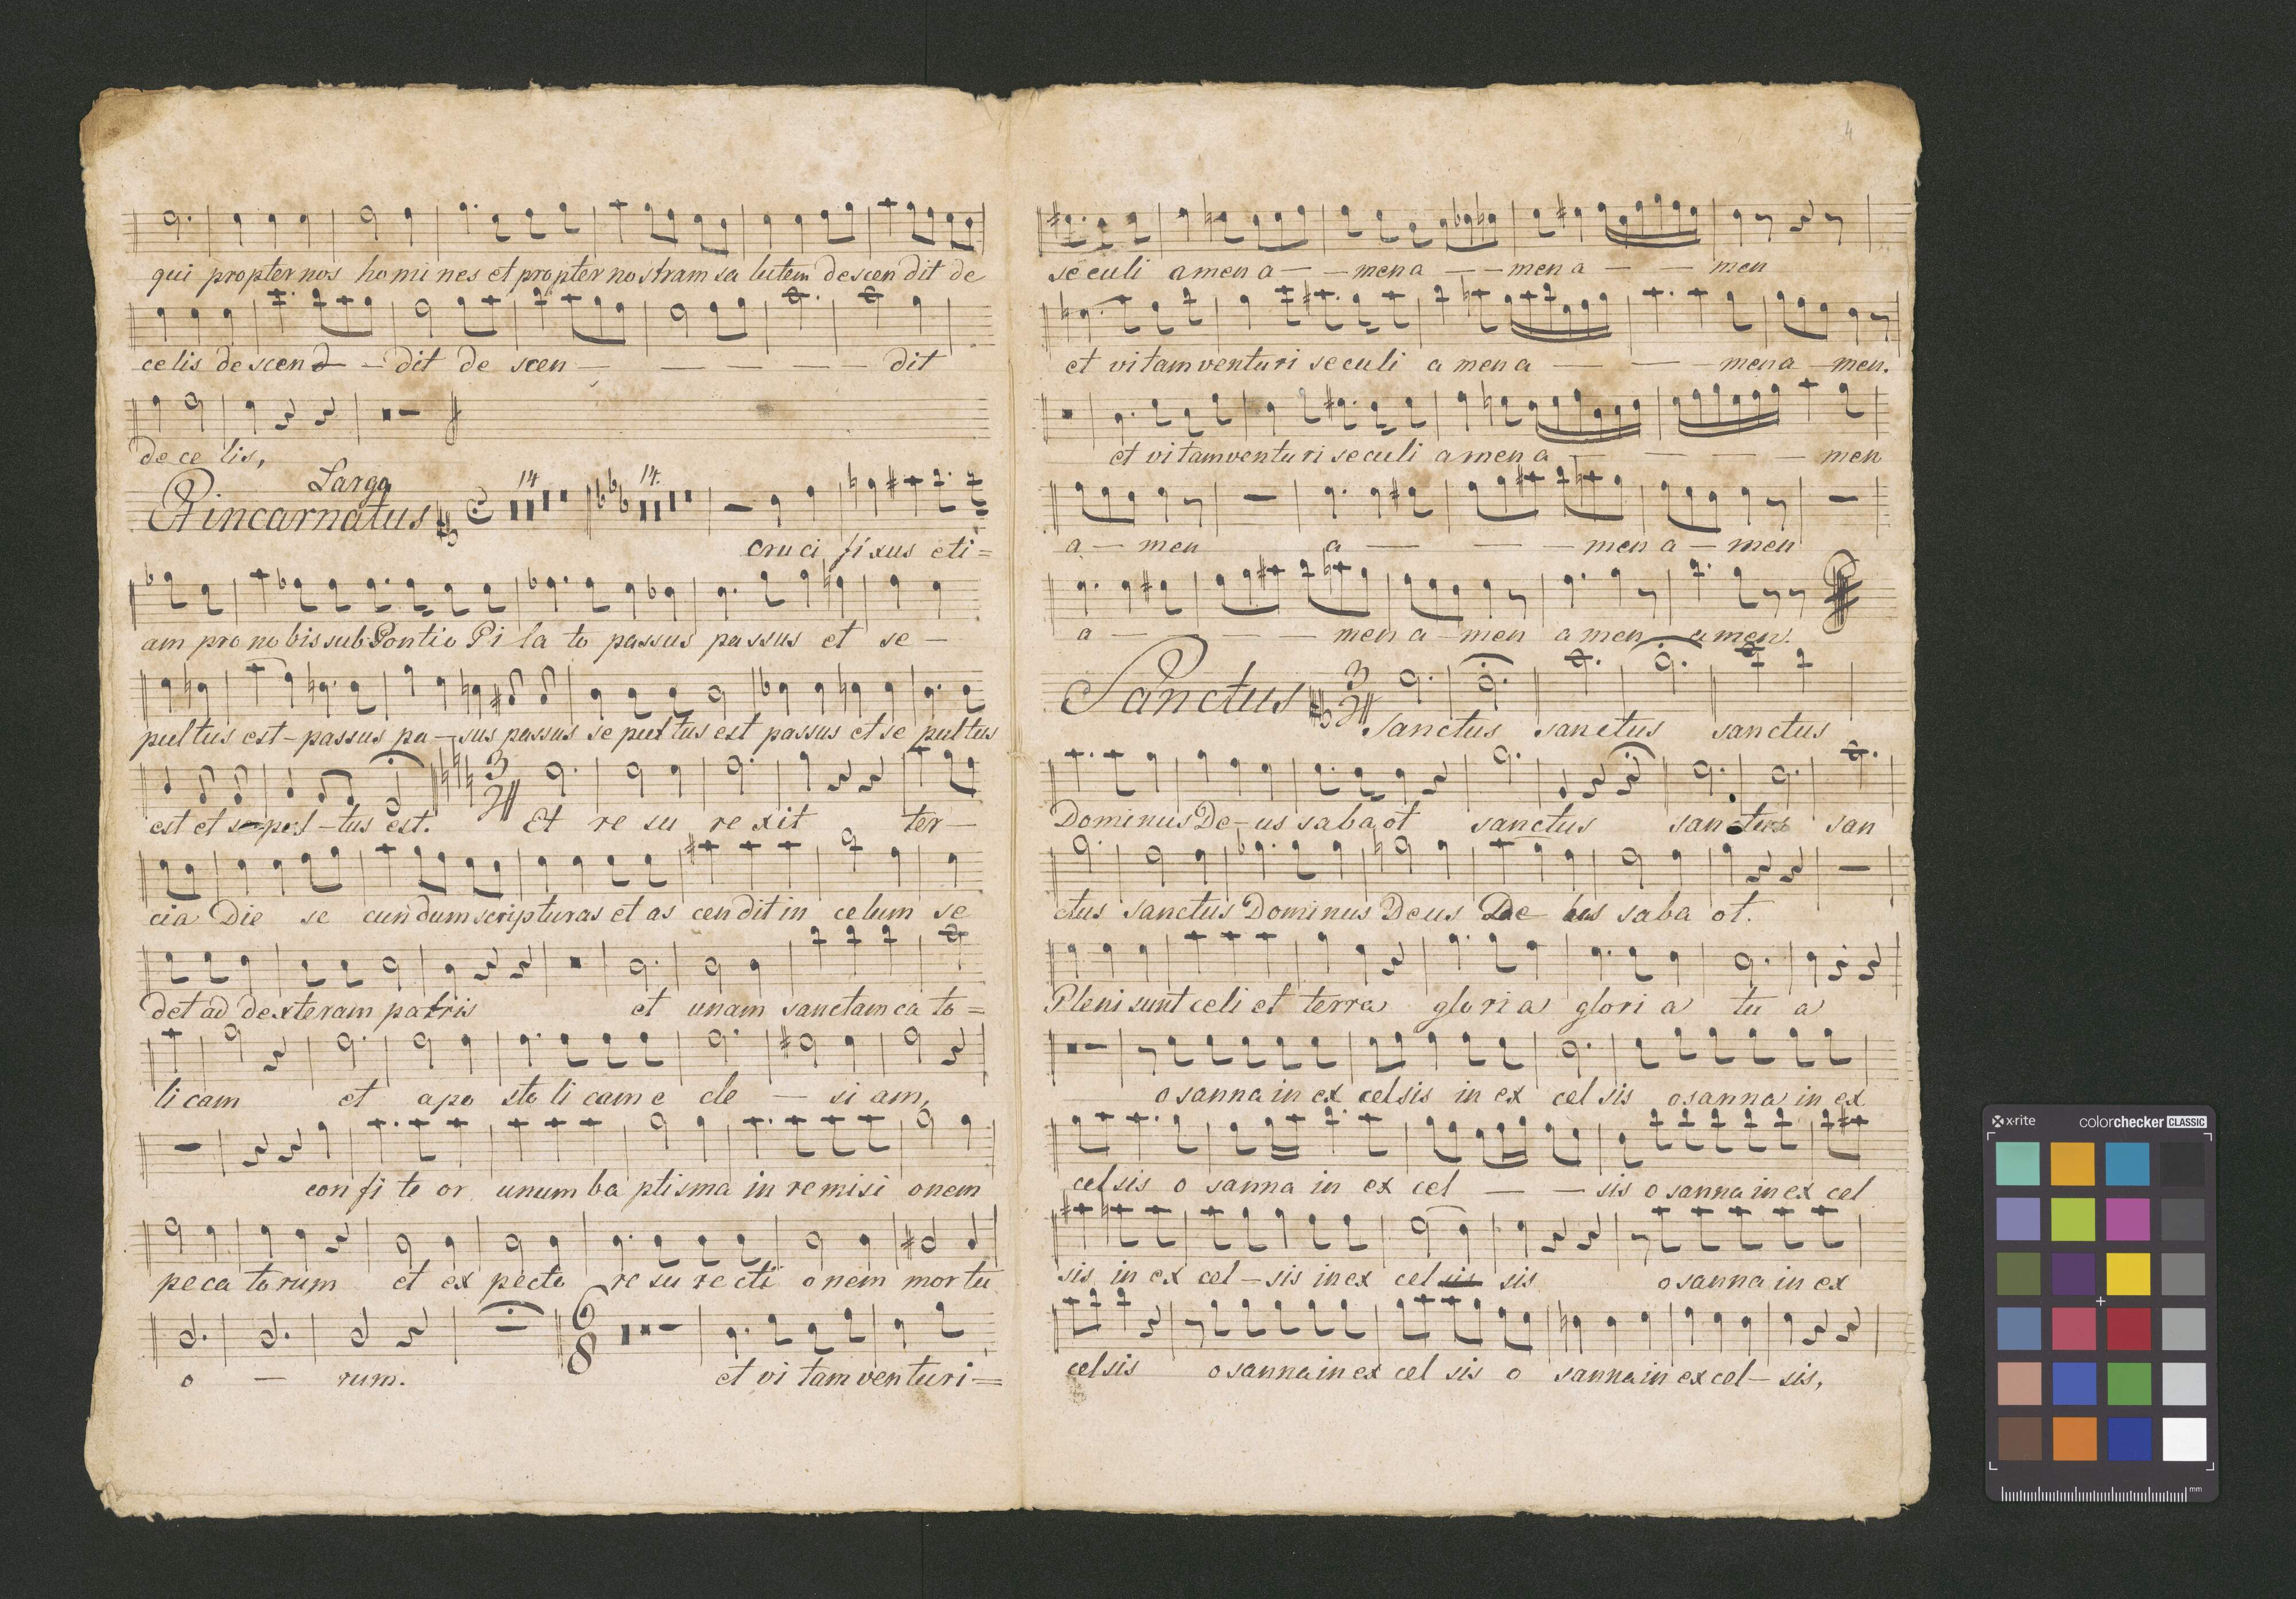 qui propter nos homi nes et propter nostram sa lutem descen dit de
celis de scend - dit de scen - - - - - dit
de ce lis,
Largo
Et incarnatus 14 14.
cruci fixus eti =
am pro no bis sub Pontio Pi la to passus passus et se -
pultus est - passus pa - sus passus se pultus est passus et se pultus
est et se pul - tus est. 3 4 Et re su re xit ter -
cia Die se cundum scripturas et as cen dit in celum se
det ad dexteram patris et unam sanctam ca to =
li cam et apo sto li cam e cle - si am,
con fi te or unum ba ptisma in remisi onem
pe ca to rum et ex pecto re su re cti onem mor tu
o - rum. 6 8 et vi tam venturi =
4
seculi amen a - - men a - - men a - - men
et vi tam venturi seculi a men a - - men a - men.
et vi tam ventu ri seculi a men a - - - - men
a - men a - - - men a - men
a - - - - men a - men a men a men.
Sanctus 3 4 Sanctus sanctus sanctus
Dominus De - us saba ot sanctus sanctus san
ctus sanctus Dominus Deus De us saba ot.
Pleni sunt celi et terra glo ri a glori a tu a
o sanna in ex celsis in ex cel sis osanna in ex
celsis o sanna in ex cel - - sis o sanna in ex cel
sis in ex cel - sis in ex cel sis sis osanna in ex
celsis o sanna in ex cel sis o sanna in ex cel - sis,
x-rite colorchecker CLASSIC
mm